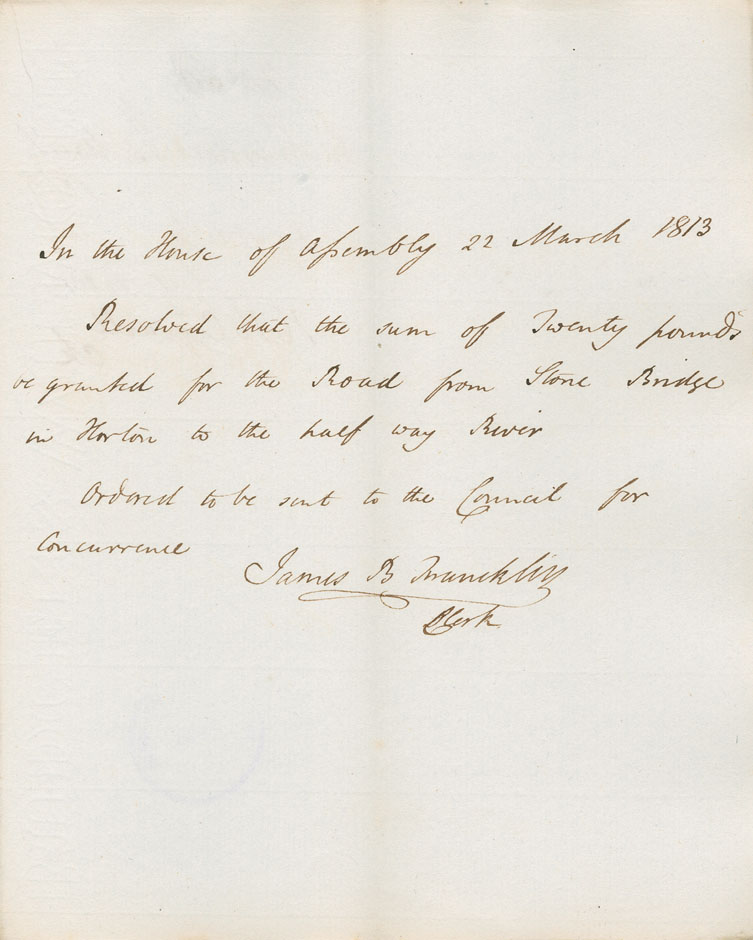 In the House of Assembly 22 March 1813
Resolved that the sum of Twenty pounds
be granted for the Road from Stone Bridge
in Horton to the half way River
Ordered to be sent to the Council for
Concurrence
James B Francklin
Clerk